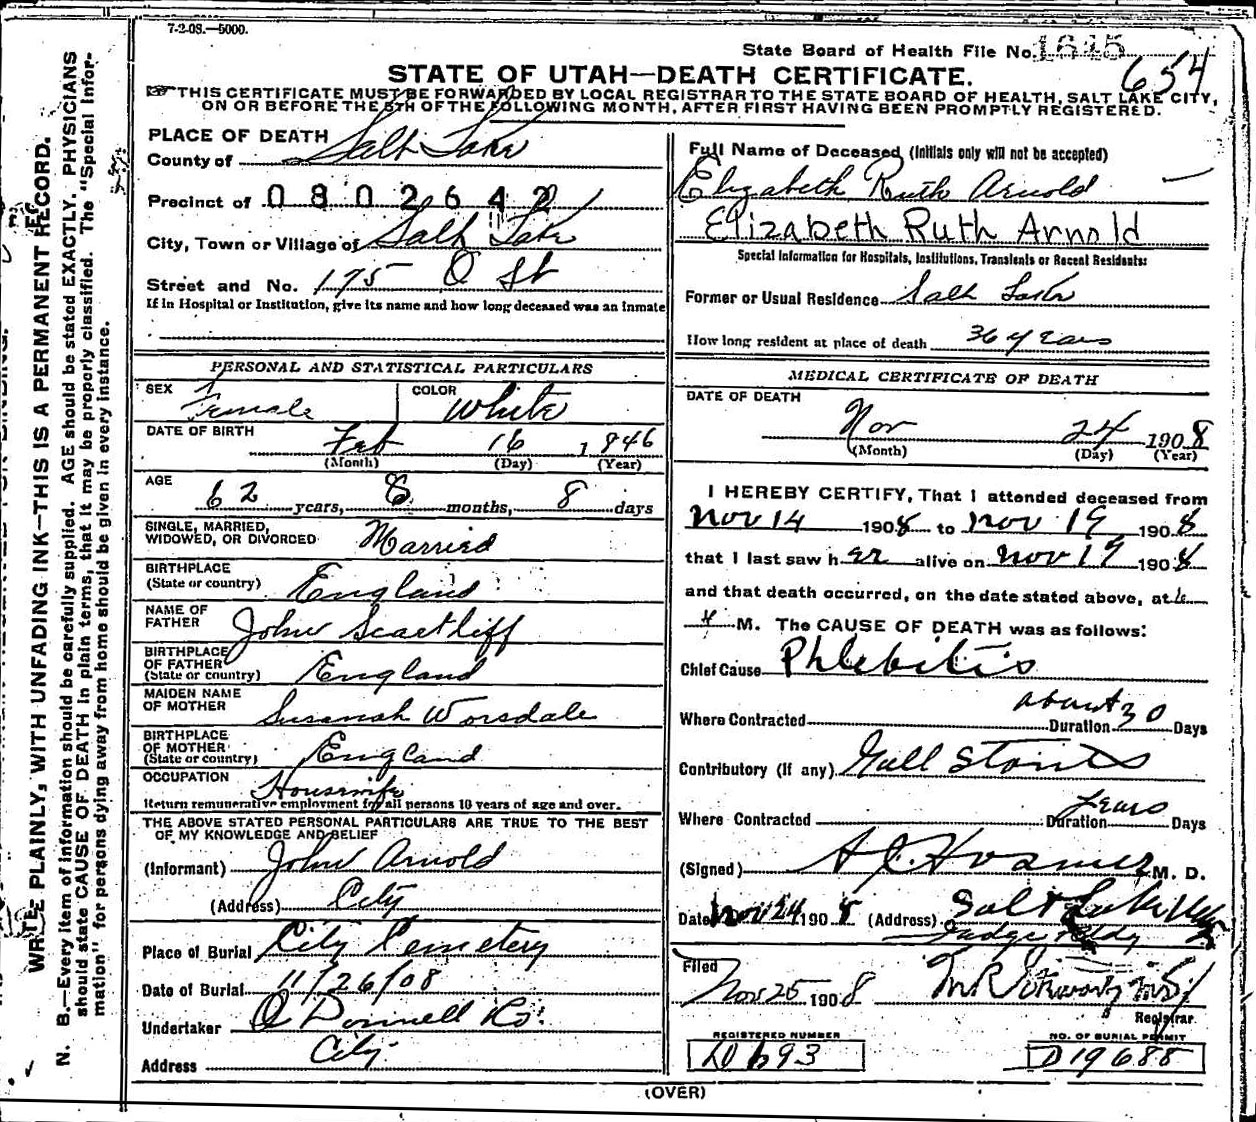 7-2-08.—5000.
State Board of Health File No. 1645
654
STATE OF UTAH—DEATH CERTIFICATE.
THIS CERTIFICATE MUST BE FORWARDED BY LOCAL REGISTRAR TO THE STATE BOARD OF HEALTH, SALT LAKE CITY,
ON OR BEFORE THE 5TH OF THE FOLLOWING MONTH, AFTER FIRST HAVING BEEN PROMPTLY REGISTERED.
PLACE OF DEATH
County of Salt Lake
Precinct of 0802642
City, Town or Village of Salt Lake
Street and No. 175 O St
If in Hospital or Institution, give its name and how long deceased was an inmate
PERSONAL AND STATISTICAL PARTICULARS
SEX Female COLOR White
DATE OF BIRTH Feb 16 1846
(Month) (Day) (Year)
AGE 62 years, 8 months, 8 days
SINGLE, MARRIED,
WIDOWED, OR DIVORCED Married
BIRTHPLACE
(State or country) England
NAME OF
FATHER John Scartliff
BIRTHPLACE
OF FATHER
(State or country) England
MAIDEN NAME
OF MOTHER Susanah Worsdale
BIRTHPLACE
OF MOTHER
(State or country) England
OCCUPATION Housewife
Return remunerative employment for all persons 10 years of age and over.
THE ABOVE STATED PERSONAL PARTICULARS ARE TRUE TO THE BEST
OF MY KNOWLEDGE AND BELIEF
(Informant) John Arnold
(Address) City
Place of Burial City Cemetery
Date of Burial 11/26/08
Undertaker O Donnell Co.
Address City
Full Name of Deceased (Initials only will not be accepted)
Elizabeth Ruth Arnold
Elizabeth Ruth Arnold
Special Information for Hospitals, Institutions, Transients or Recent Residents:
Former or Usual Residence Salt Lake
How long resident at place of death 36 years
MEDICAL CERTIFICATE OF DEATH
DATE OF DEATH
Nov 24 1908
(Month) (Day) (Year)
I HEREBY CERTIFY, That I attended deceased from
Nov 14 1908 to Nov 19 1908
that I last saw her alive on Nov 19 1908
and that death occurred, on the date stated above, at
M. The CAUSE OF DEATH was as follows:
Chief Cause Phlebitis
Where Contracted Duration about 30 Days
Contributory (If any) Gall Stones
Where Contracted Duration years Days
(Signed) M. D.
Date Nov 24 1908 (Address) Salt Lake
Filed
Nov 25 1908
Registrar
REGISTERED NUMBER
D693
NO. OF BURIAL PERMIT
D19688
(OVER)
WRITE PLAINLY, WITH UNFADING INK—THIS IS A PERMANENT RECORD.
N. B.—Every item of information should be carefully supplied. AGE should be stated EXACTLY. PHYSICIANS
should state CAUSE OF DEATH in plain terms, that it may be properly classified. The "Special Infor-
mation" for persons dying away from home should be given in every instance.